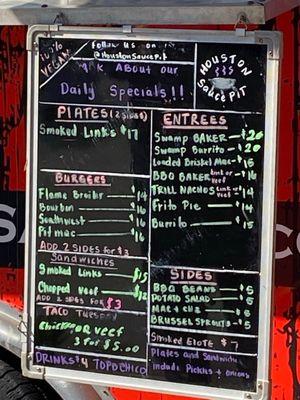 100%
VEGAN
Follow Us on
@HoustonSaucePit
ASK ABOUT our
Daily Specials!!
HOUSTON
Sauce PIT
PLATES (2 Sides)
Smoked Links $17
BURGERS
Flame Broiler $14
Bourbon $16
Southwest $16
Pit mac $16
ADD 2 SIDES for $3
Sandwiches
Smoked Links $15
Chopped Veef $12
ADD 2 SIDES FOR $3
TACO Tuesday
Chicken OR Veef
3 for $5.00
DRINKS $4 TOPOCHICO
ENTREES
Swamp BAKER $20
Swamp Burrito $20
Loaded Brisket Mac $15
BBQ BAKER Link or Veef $16
TRILL NACHOS Link or Veef $14
Frito Pie $14
Burrito $15
SIDES
BBQ BEANS $5
POTATO SALAD $5
MAC + CHZ $5
BRUSSEL SPROUTS $5
Smoked Elote $7
Plates and Sandwiches
Include Pickles + onions